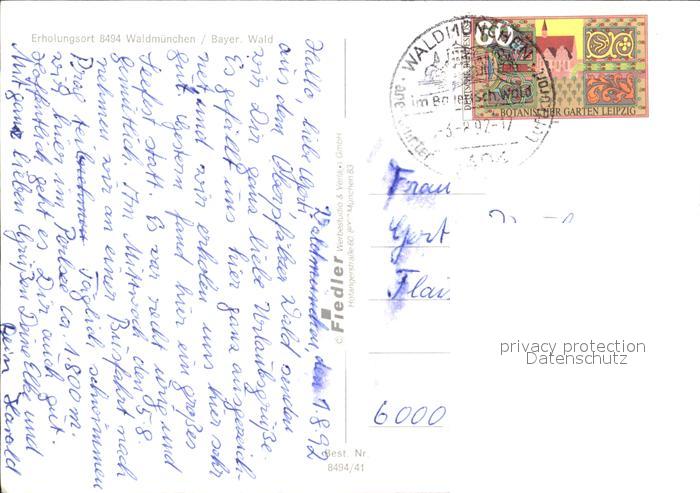 Erholungsort 8494 Waldmünchen / Bayer. Wald
Waldmünchen, den 1.8.92
Hallo, liebe Gerti,
aus dem Oberpfälzer Wald senden
wir Dir ganz liebe Urlaubsgrüße.
Es gefällt uns hier ganz ausgezeich-
net und wir erholen uns hier sehr
gut. Gestern fand hier ein großes
Seefest statt. Es war recht urig und
gemütlich. Am Mittwoch den 5.8.
nehmen wir an einer Busfahrt nach
Prag teil. Täglich schwimmen
wir hier im Perlsee ca. 1.800 m.
Hoffentlich geht es Dir auch gut.
Mit ganz lieben Grüßen Deine Elke und
Dein Harald
© Fiedler Werbestudio & Verlags GmbH
Hofangerstraße 60, München 83
Best. Nr.
8494/41
WALDMÜNCHEN
im Bayerisch Wald
Luftkurort
BOTANISCHER GARTEN LEIPZIG
Frau
Gert
6000
privacy protection
Datenschutz